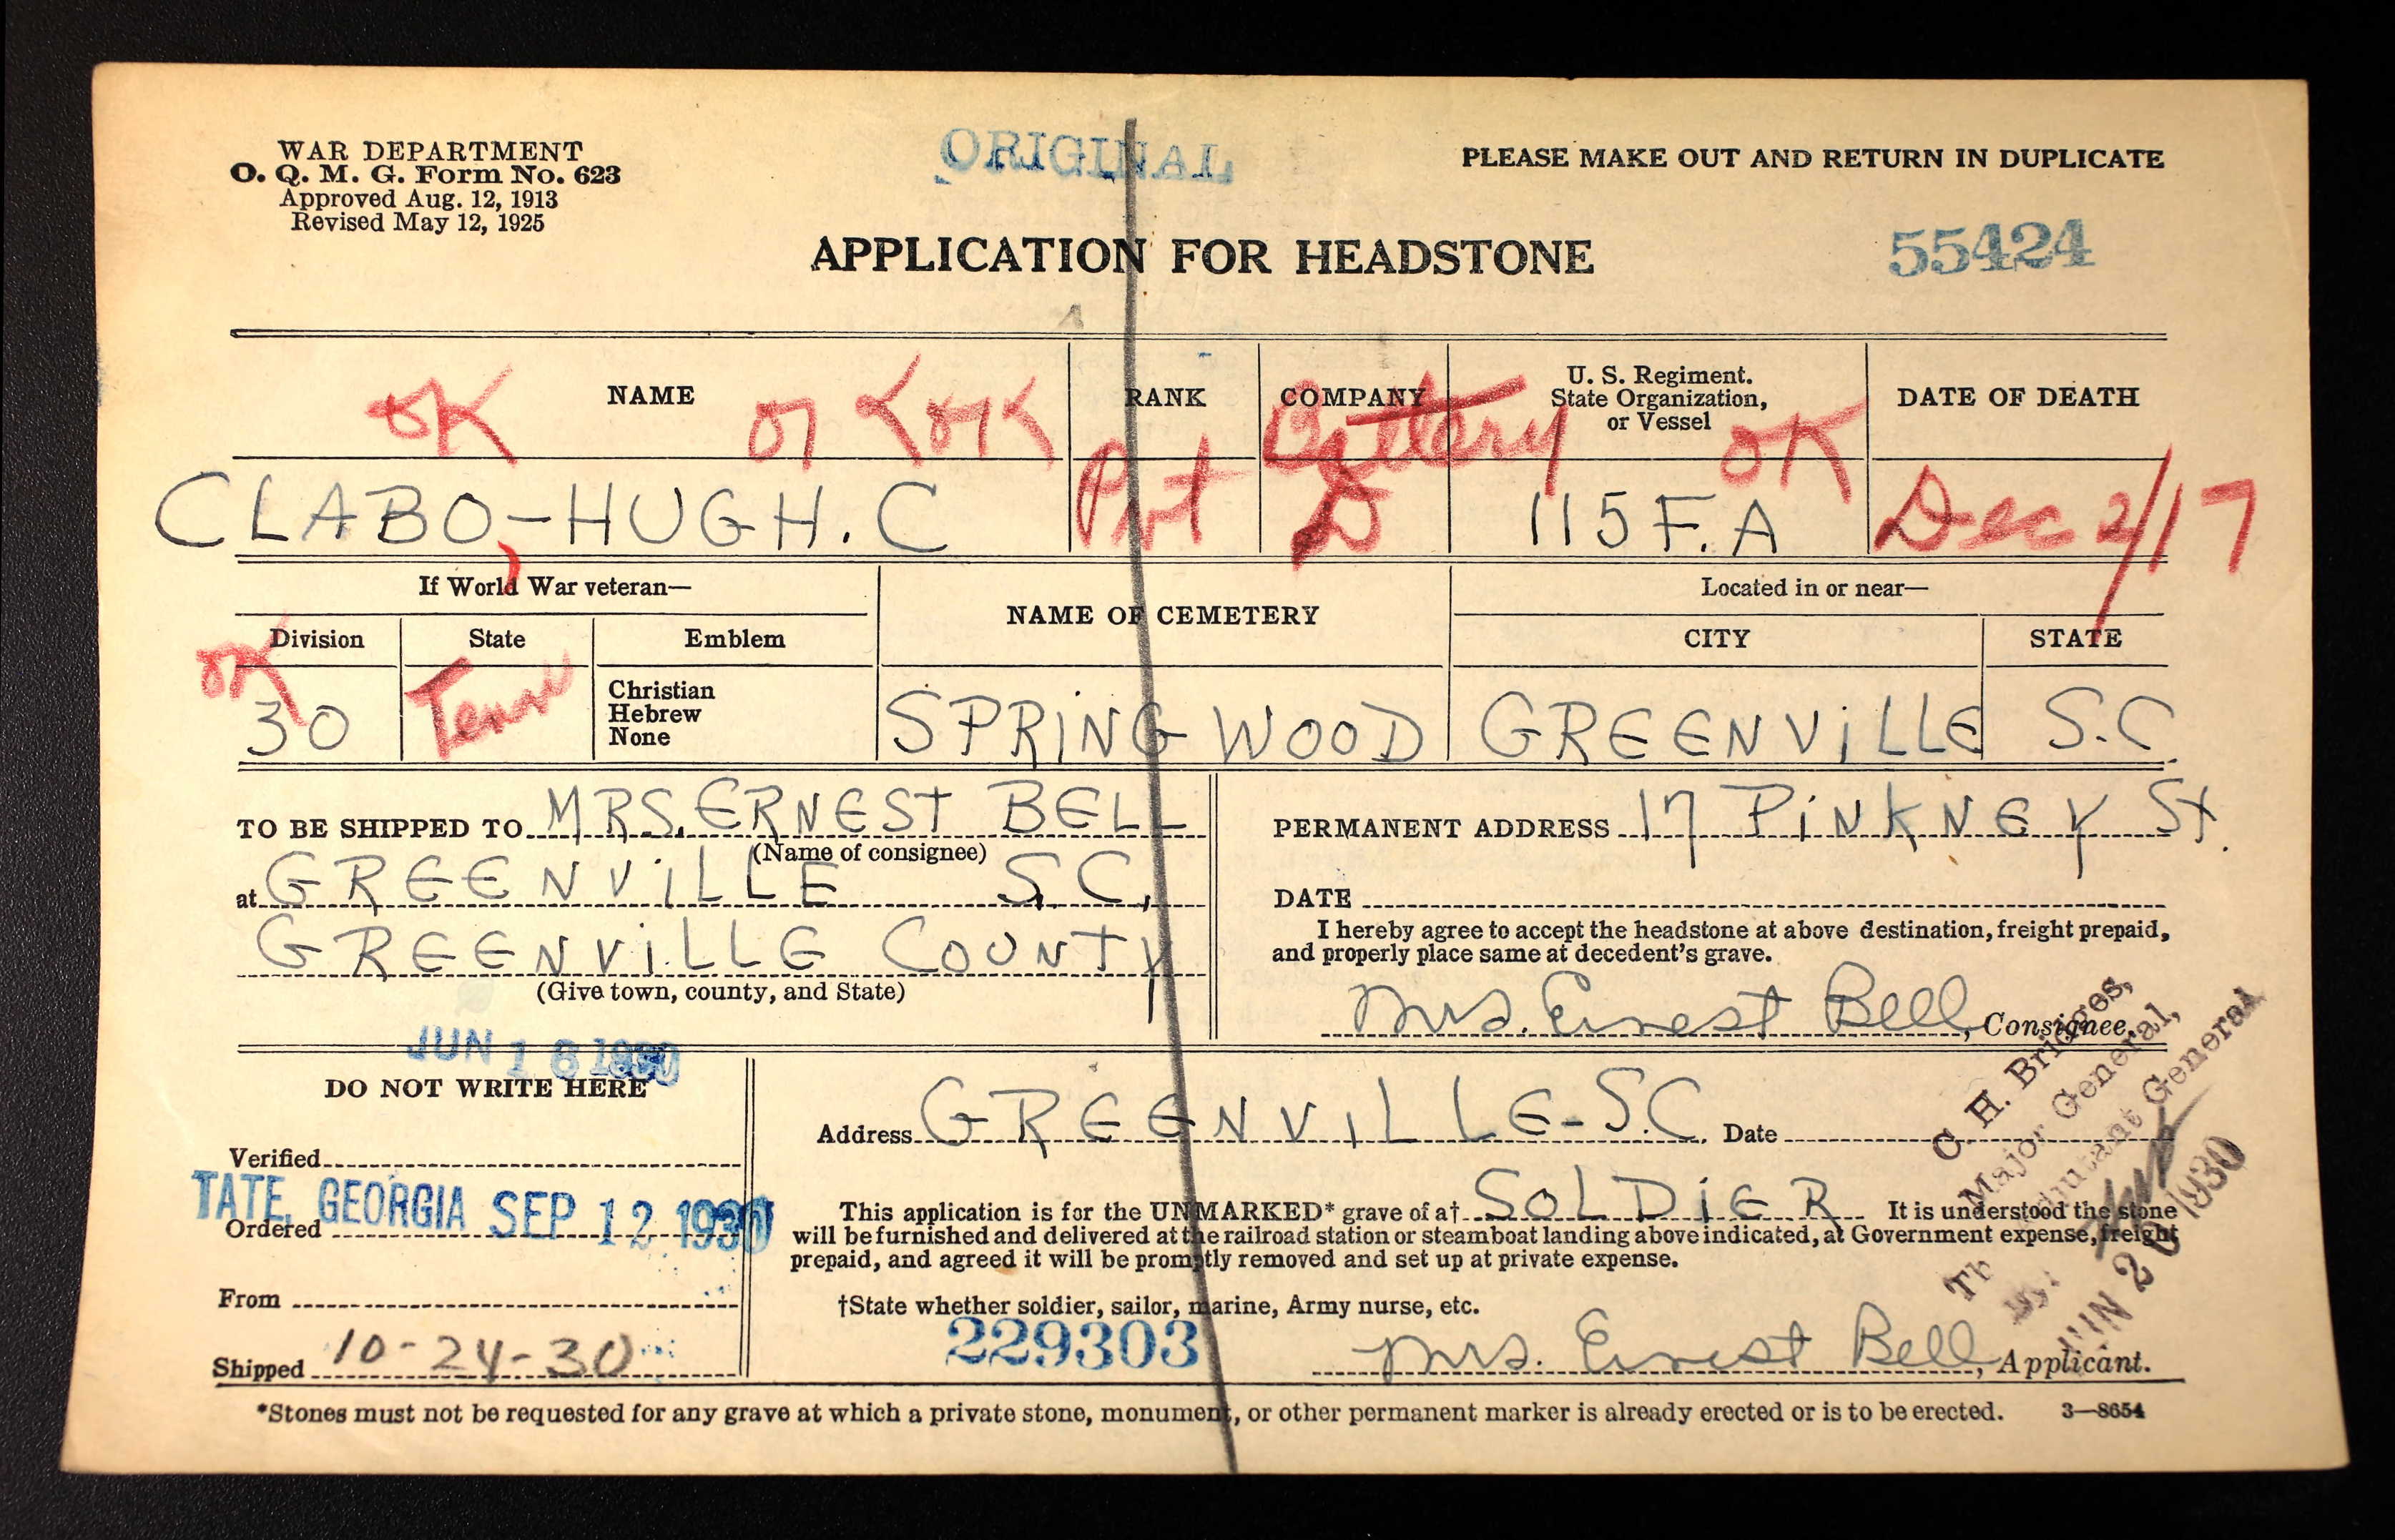 WAR DEPARTMENT
O. Q. M. G. Form No. 623
Approved Aug. 12, 1913
Revised May 12, 1925
ORIGINAL
PLEASE MAKE OUT AND RETURN IN DUPLICATE
55424
APPLICATION FOR HEADSTONE
NAME
RANK
COMPANY
U. S. Regiment.
State Organization,
or Vessel
DATE OF DEATH
OK
OK
OK
Battery
OK
CLABO-HUGH. C
Pvt
D
115 F. A
Dec 2/17
If World War veteran—
NAME OF CEMETERY
Located in or near—
Division
State
Emblem
CITY
STATE
OK
30
Tenn
Christian
Hebrew
None
SPRING WOOD
GREENVILLE
S.C.
TO BE SHIPPED TO MRS. ERNEST BELL
(Name of consignee)
at GREENVILLE S.C,
GREENVILLE COUNTY
(Give town, county, and State)
PERMANENT ADDRESS 17 PINKNEY St.
DATE
I hereby agree to accept the headstone at above destination, freight prepaid,
and properly place same at decedent's grave.
Mrs. Ernest Bell, Consignee.
JUN 16 1930
DO NOT WRITE HERE
Verified
TATE, GEORGIA SEP 12 1930
Ordered
From
Shipped 10-24-30
Address GREENVILLE-S.C. Date
This application is for the UNMARKED* grave of a† SOLDIER It is understood the stone
will be furnished and delivered at the railroad station or steamboat landing above indicated, at Government expense, freight
prepaid, and agreed it will be promptly removed and set up at private expense.
†State whether soldier, sailor, marine, Army nurse, etc.
229303
Mrs. Ernest Bell, Applicant.
C. H. Bridges,
Major General,
The Adjutant General
JUN 26 1930
*Stones must not be requested for any grave at which a private stone, monument, or other permanent marker is already erected or is to be erected. 3—8654